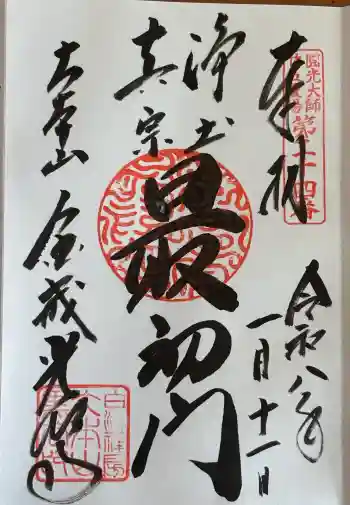 圓光大師
第二十四番
奉拝
令和八年
一月十一日
浄土
真宗
最初門
大本山
金戒光明寺
大本山